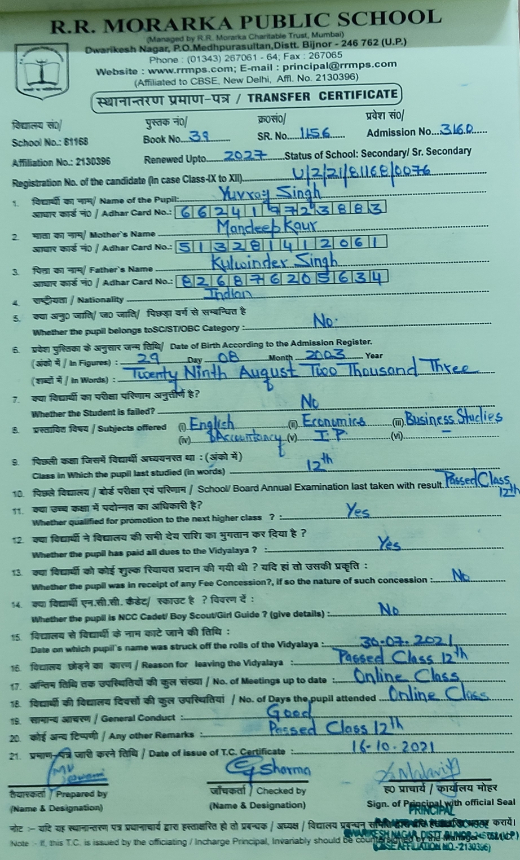 R.R. MORARKA PUBLIC SCHOOL
(Managed by R.R. Morarka Charitable Trust, Mumbai)
Dwarikesh Nagar, P.O.Medhpurasultan,Distt. Bijnor - 246 762 (U.P.)
Phone : (01343) 267061 - 64; Fax : 267065
Website : www.rrmps.com; E-mail : principal@rrmps.com
(Affiliated to CBSE, New Delhi, Affi. No. 2130396)
स्थानान्तरण प्रमाण-पत्र / TRANSFER CERTIFICATE
विद्यालय सं0/ पुस्तक नं0/ क्र0सं0/ प्रवेश सं0/
School No.: 81168 Book No. 39 SR. No. 1156 Admission No. 3160
Affiliation No.: 2130396 Renewed Upto 2027 Status of School: Secondary/ Sr. Secondary
Registration No. of the candidate (In case Class-IX to XII) U/2/21/81168/0076
1. विद्यार्थी का नाम/ Name of the Pupil: Yuvraj Singh
आधार कार्ड नं0 / Adhar Card No.: 662419723883
2. माता का नाम/ Mother's Name Mandeep Kaur
आधार कार्ड नं0/ Adhar Card No.: 513281412061
3. पिता का नाम/ Father's Name Kulwinder Singh
आधार कार्ड नं0 / Adhar Card No.: 826876205634
4. राष्ट्रीयता / Nationality Indian
5. क्या अनु0 जाति/ ज0 जाति/ पिछड़ा वर्ग से सम्बन्धित है
Whether the pupil belongs toSC/ST/OBC Category : No.
6. प्रवेश पुस्तिका के अनुसार जन्म तिथि/ Date of Birth According to the Admission Register.
(अंको में / In Figures) : 29 Day 08 Month 2003 Year
(शब्दों में / In Words) : Twenty Ninth August Two Thousand Three
7. क्या विद्यार्थी का परीक्षा परिणाम अनुत्तीर्ण है?
Whether the Student is failed? No
8. प्रस्तावित विषय / Subjects offered (i) English (ii) Economics (iii) Business Studies
(iv) Accountancy (v) I.P. (vi) –
9. पिछली कक्षा जिसमें विद्यार्थी अध्ययनरत था : (अंको में)
Class in Which the pupil last studied (in words) 12th
10. पिछले विद्यालय / बोर्ड परीक्षा एवं परिणाम / School/ Board Annual Examination last taken with result. Passed Class 12th
11. क्या उच्च कक्षा में पदोन्नत का अधिकारी है?
Whether qualified for promotion to the next higher class ? : Yes
12. क्या विद्यार्थी ने विद्यालय की सभी देय राशि का भुगतान कर दिया है ?
Whether the pupil has paid all dues to the Vidyalaya ? : Yes
13. क्या विद्यार्थी को कोई शुल्क रियायत प्रदान की गयी थी ? यदि हां तो उसकी प्रकृति :
Whether the pupil was in receipt of any Fee Concession?, if so the nature of such concession : No
14. क्या विद्यार्थी एन.सी.सी. कैडेट/ स्काउट है ? विवरण दें :
Whether the pupil is NCC Cadet/ Boy Scout/Girl Guide ? (give details) : No
15. विद्यालय से विद्यार्थी के नाम काटे जाने की तिथि :
Date on which pupil's name was struck off the rolls of the Vidyalaya : 30-07-2021
16. विद्यालय छोड़ने का कारण / Reason for leaving the Vidyalaya Passed Class 12th
17. अन्तिम तिथि तक उपस्थितियों की कुल संख्या / No. of Meetings up to date : Online Class
18. विद्यार्थी की विद्यालय दिवसों की कुल उपस्थितियां / No. of Days the pupil attended Online Class
19. सामान्य आचरण / General Conduct : Good
20. कोई अन्य टिप्पणी / Any other Remarks : Passed Class 12th
21. प्रमाण-पत्र जारी करने तिथि / Date of issue of T.C. Certificate : 16-10-2021
Sharma
तैयारकर्ता / Prepared by जाँचकर्ता / Checked by ह0 प्राचार्य / कार्यालय मोहर
(Name & Designation) (Name & Designation) Sign. of Principal with official Seal
PRINCIPAL
नोट :- यदि यह स्थानान्तरण पत्र प्रधानाचार्य द्वारा हस्ताक्षरित हो तो प्रबन्धक / अध्यक्ष / विद्यालय प्रबन्धन करायें।
DWARIKESH NAGAR, DISTT. BIJNOR
Note :- If, this T.C. is issued by the officiating / Incharge Principal, Invariably should be
(AFFILIATION NO.-2130396)